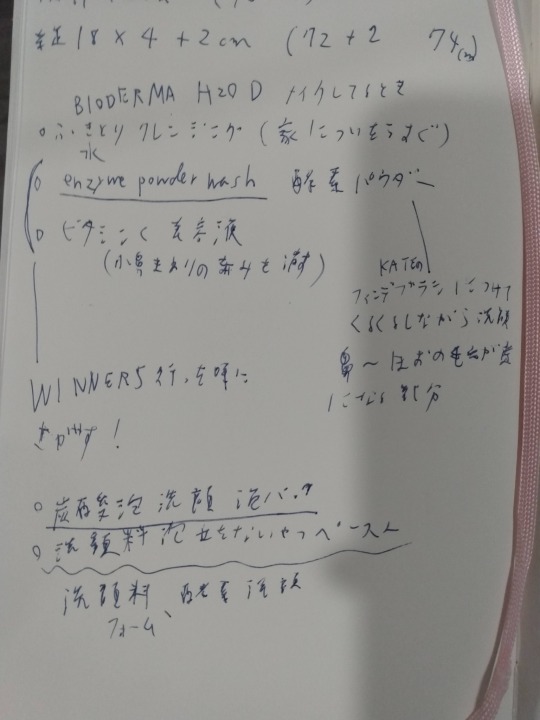 18 × 4 + 2cm (72 + 2 74cm)
BIODERMA H2O D メイクしてるとき
ふきとり クレンジング (家についたらすぐ)
水
enzyme powder wash 酵素パウダー
ビタミンC 美容液
(小鼻まわりの赤みを消す)
KATEの
につけて
くるくるしながら洗顔
鼻〜ほおの毛穴が気
になる部分
WINNERS 行
さがす!
炭酸泡洗顔 泡パック
洗顔料 泡立たないやつ ペースト
洗顔料、酵素洗顔
フォーム